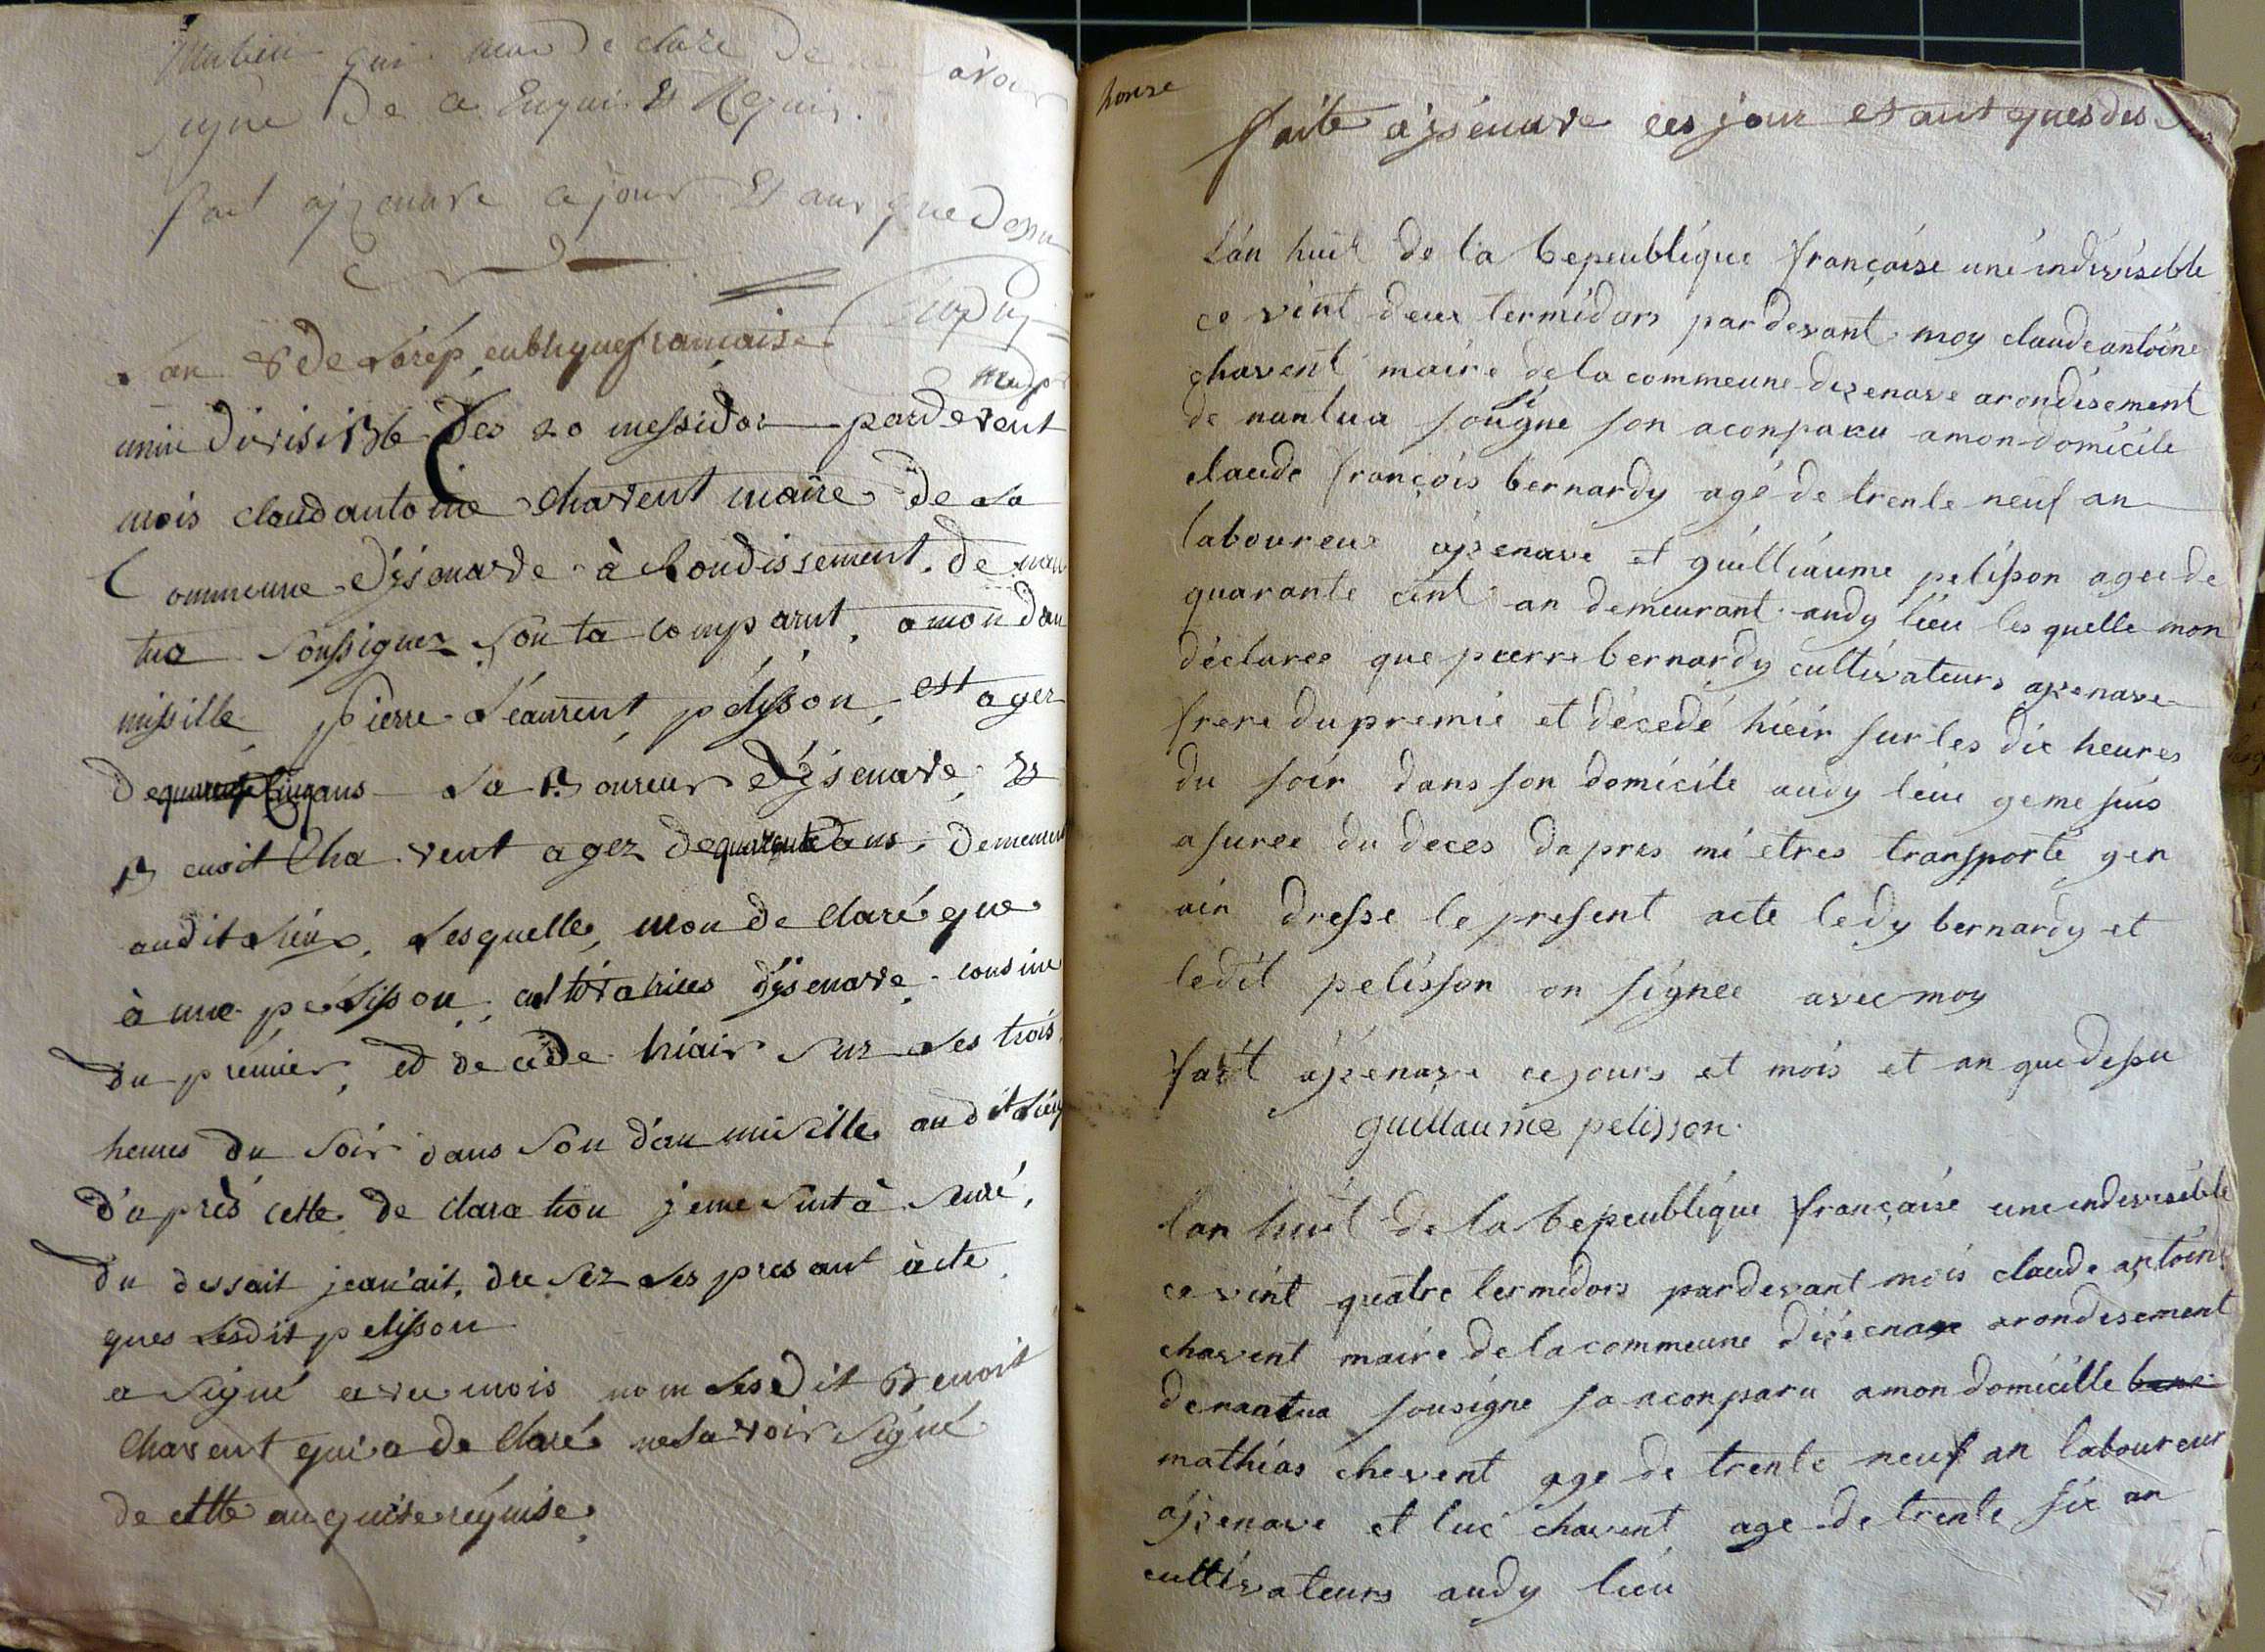 qui declaré de avoir
signe De ce Enquis Et Requis.
fait ajzenave ce jour Et an que Dessu
Lan 8 de La rép eublique francaise
unin divisible Les 20 messidor pardevent
mois claudantoine Chavent maire de La
Commeune D'isenave à Rondissement de nan
tua Soussignez Son ta comparut, a mon dau
missille pierre Léaurent pelisson, est agez
De cinq ans La Boureur D'isenave, Et
Benoit Chavent agez de quarente ans, demeuren
audit Lieux, Lesquelle mon de claré que
à une pelisson, cultivatrices d'isenave cousine
du prémier, et decéde hiair sur Les trois
heures du Soir dans Son dau micille audit Lieu
d'après cette de claration jeme Suit à Seuré,
du dessait jean'ait dresez Les presant àcte
ques Lesdit pelisson
a Signé avec mois nom Lesdit Benoit
Chavent qui a de Claré ne Savoir Signé
de cette anquise réquise.
honze
faite ajsenave ces jour et ant ques des Sus
L'an huit de la Repeublique française une indivisible
ce vint deux termidors pardevant moy claude antoine
chavent maire de la commeune dezenave arondisement
de nantua sousigne son aconparu amon domicile
claude françois bernardy agé de trente neuf an
laboureur ajzenave et guilliaume pelisson agee de
quarante cint an demeurant audy lieu les quelle mon
déclaree que pierre bernardy cultivateurs ajzenave
frere du premie et décedé hieir sur les dix heures
du soir dans son domicile audy lieu geme suis
asuree du deces dapres mi etres transporté gen
ain dresse le present acte ledy bernardy et
ledit pelisson on signee avec moy
fait ajzenave ce jours et mois et an que dessu
guillaume pelisson
lan huit de la Repeublique française une indivisible
ce vint quatre termidors pardevant mois claude antoine
chavent maire de la commeune dizenave arondisement
de nantua sousigne son aconparu amon domicille
mathias chevent age de trente neuf an laboureur
ajzenave et luc chavent age de trente six an
cultivateurs audy lieu